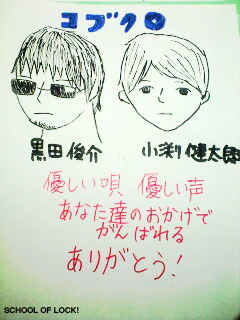 コブクロ
黒田俊介 小渕健太郎
優しい唄 優しい声
あなた達のおかげで
がんばれる
ありがとう!
SCHOOL OF LOCK!